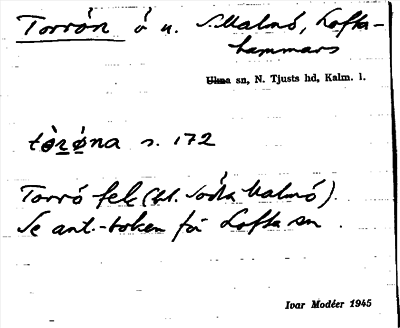 Torrön ö n. S. Malmö, Lofta-
hammars
Ukna sn, N. Tjusts hd, Kalm. l.
tòrǿna s. 172
Torrö fek (bl. Södra Malmö).
Se ant.-boken för Lofta sn.
Ivar Modéer 1945